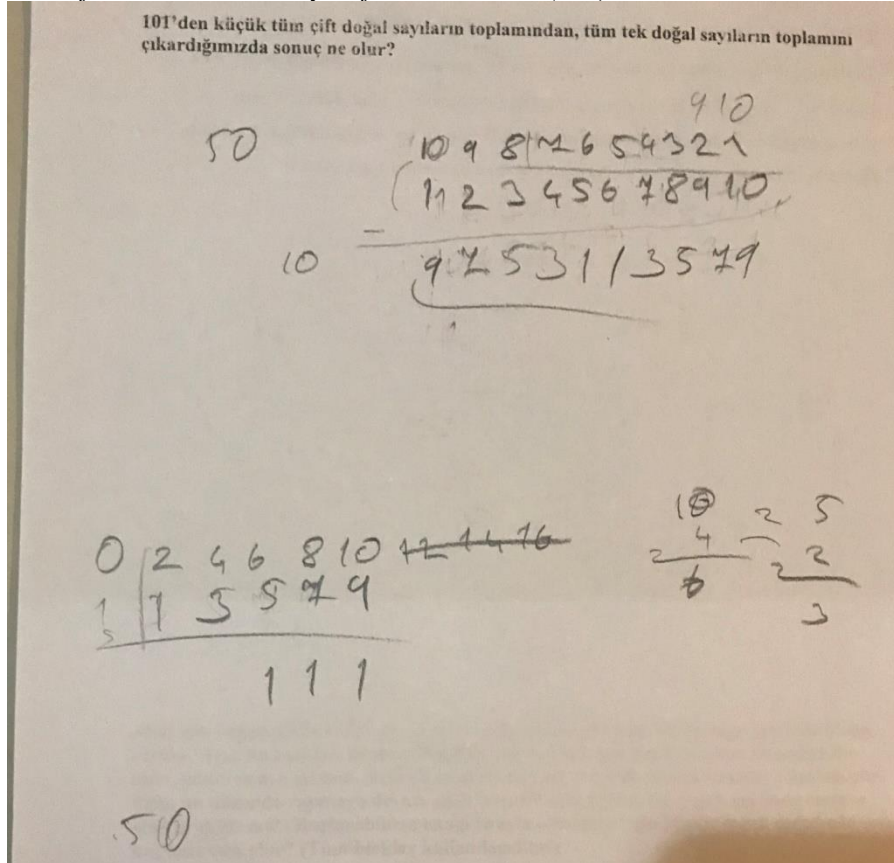 101'den küçük tüm çift doğal sayıların toplamından, tüm tek doğal sayıların toplamını
çıkardığımızda sonuç ne olur?
9 10
50
10 9 8 7 6 5 4 3 2 1
1 2 3 4 5 6 7 8 9 10
-
10
9 7 5 3 1 1 3 5 7 9
10 2 5
0 2 4 6 8 10 12 14 16
4 - 2
2 6 2 3
1 3 5 7 9
1 1 1
50